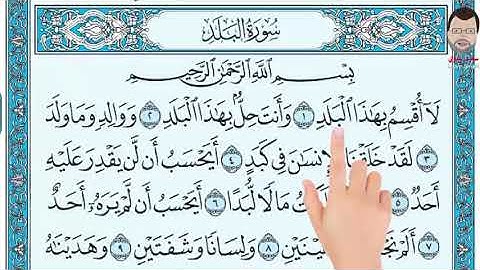 سُورَةُ الْبَلَدِ
بِسْمِ اللَّهِ الرَّحْمَٰنِ الرَّحِيمِ
لَآ أُقْسِمُ بِهَٰذَا الْبَلَدِ ١ وَأَنتَ حِلٌّ بِهَٰذَا الْبَلَدِ ٢ وَوَالِدٍ وَمَا وَلَدَ
٣ لَقَدْ الْإِنسَانَ فِي كَبَدٍ ٤ أَيَحْسَبُ أَن لَّن يَقْدِرَ عَلَيْهِ
أَحَدٌ ٥ مَالًا لُّبَدًا ٦ أَيَحْسَبُ أَن لَّمْ يَرَهُۥٓ أَحَدٌ
٧ أَلَمْ عَيْنَيْنِ ٨ وَلِسَانًا وَشَفَتَيْنِ ٩ وَهَدَيْنَاهُ